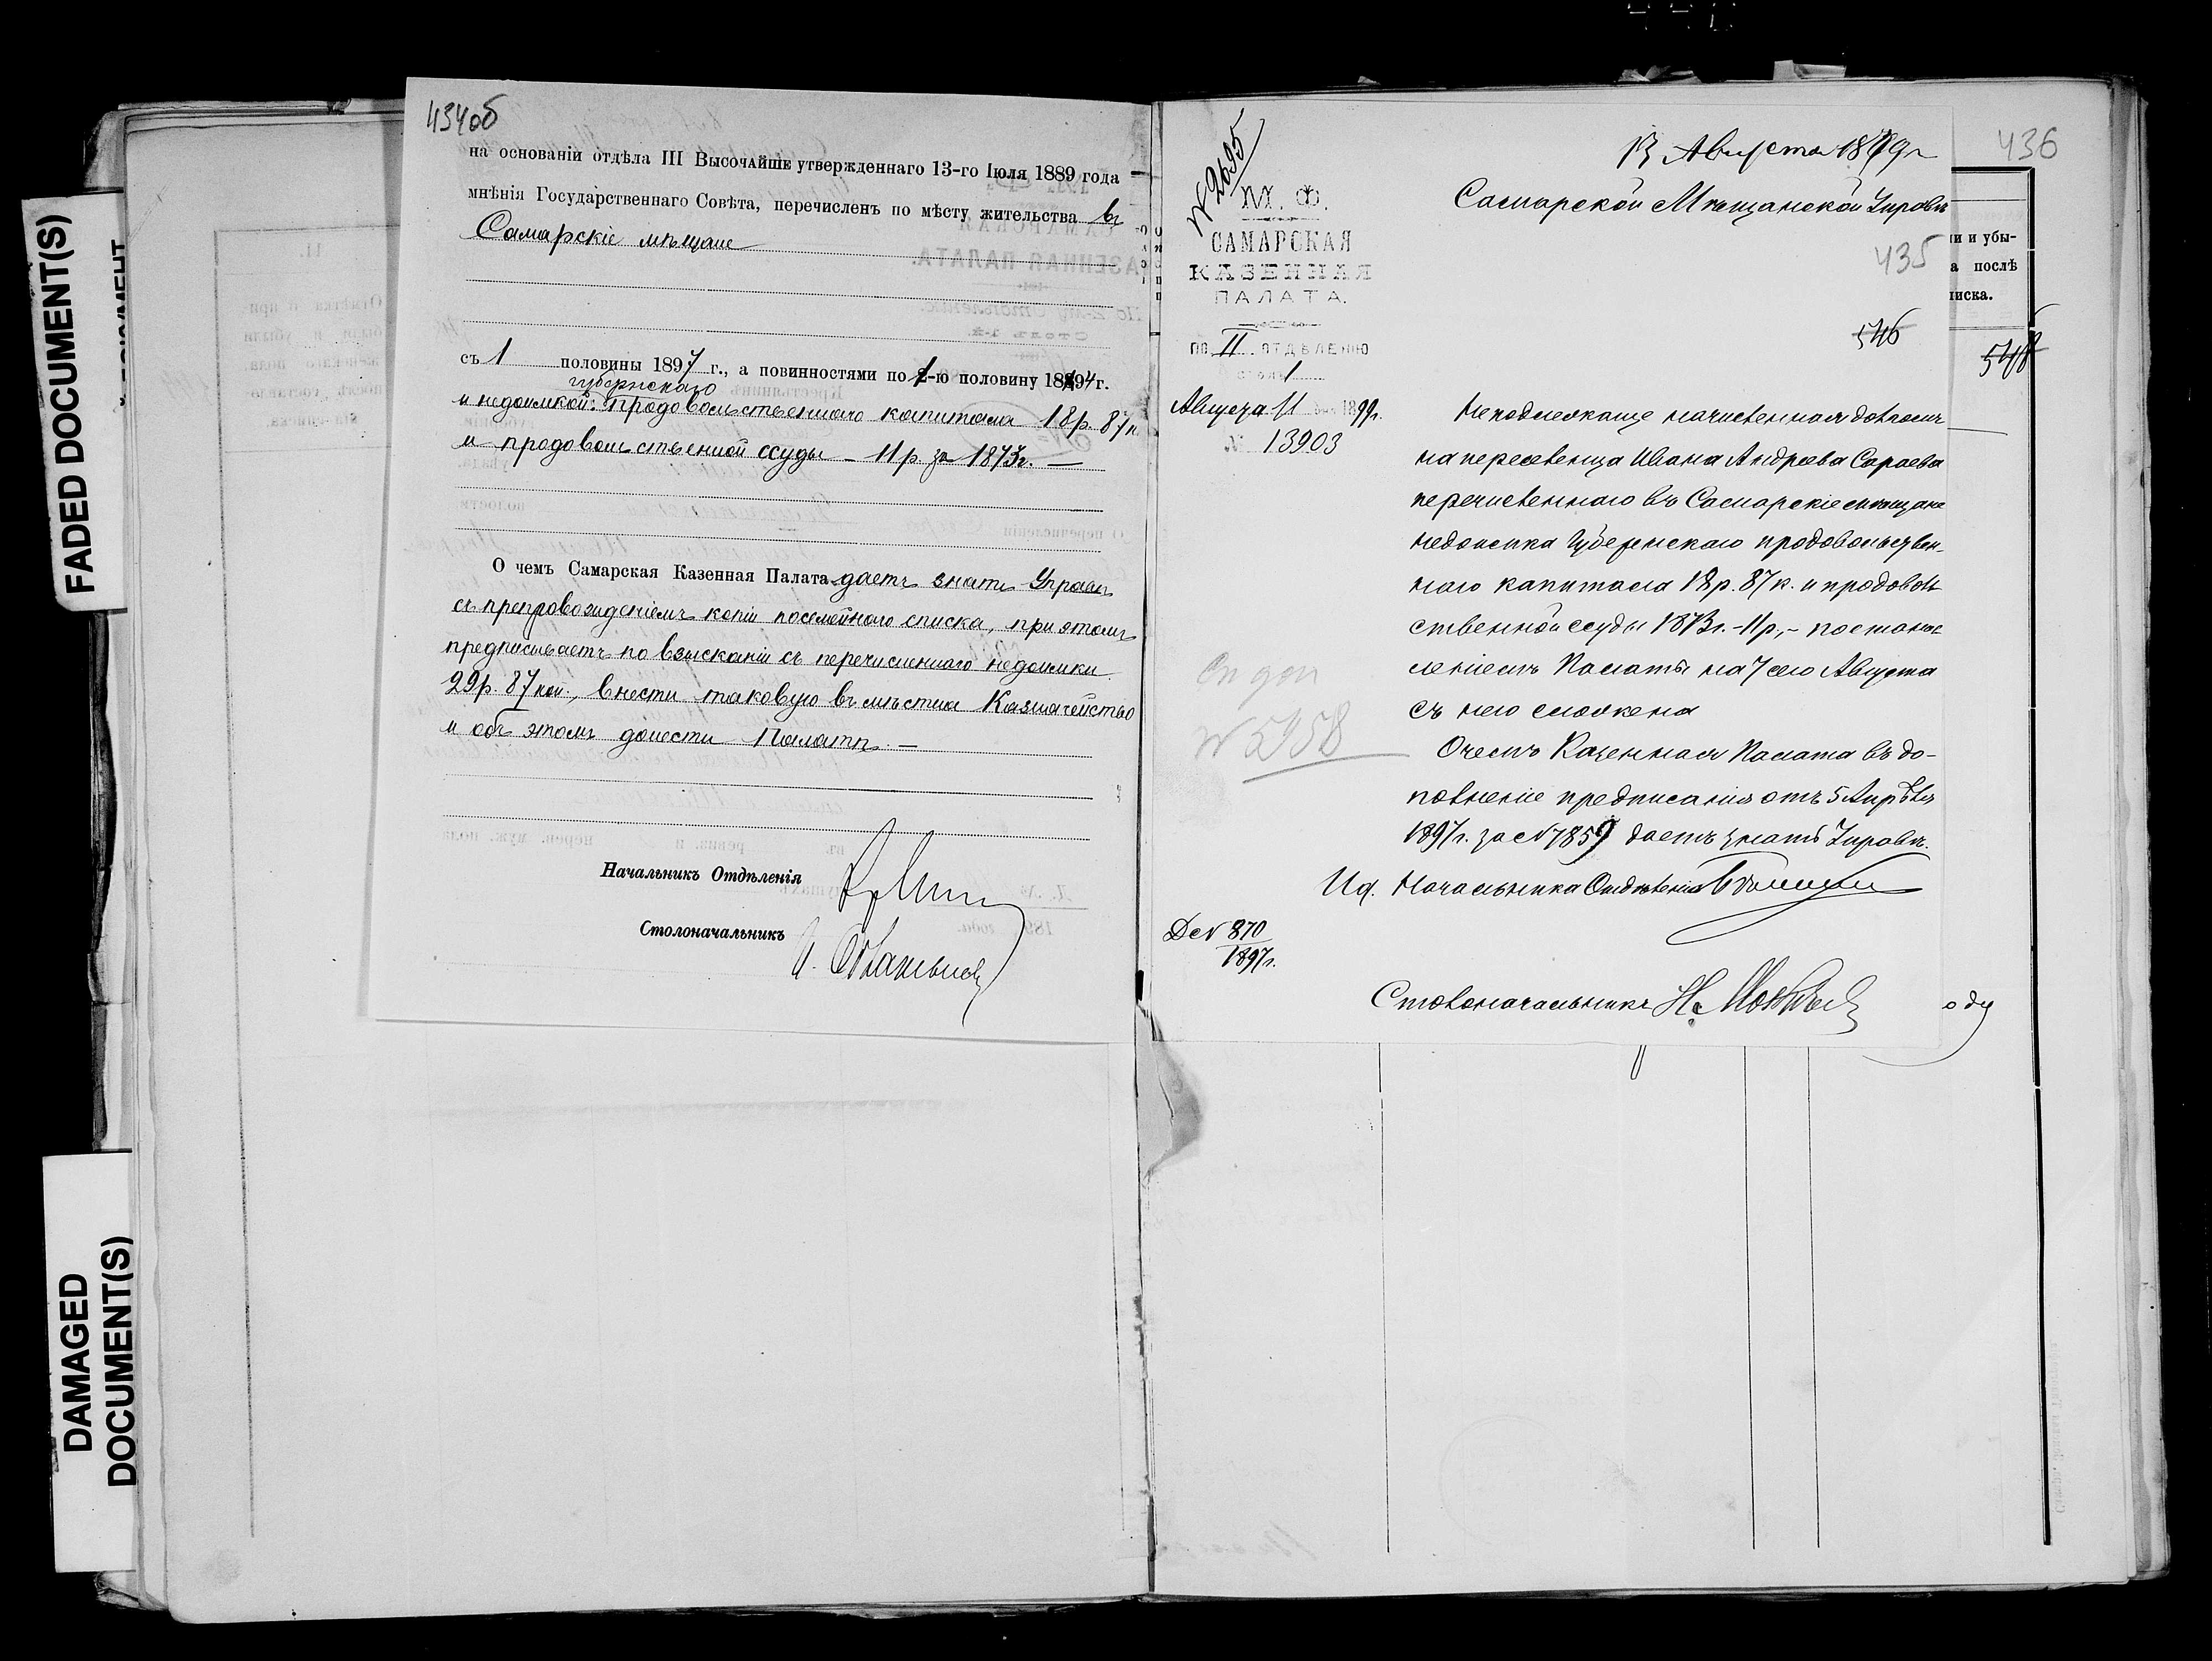 FADED DOCUMENT(S)
DAMAGED
DOCUMENT(S)
434об
на основаніи отдѣла III Высочайше утвержденнаго 13-го Іюля 1889 года
мнѣнія Государственнаго Совѣта, перечисленъ по мѣсту жительства въ
Самарскіе мѣщане
съ 1 половины 1897 г., а повинностями по 2-ю половину 1894 г.
губернскаго
и недоимкой: продовольственнаго капитала 18 р. 87 к
и продовольственной ссуды – 11 р. за 1873 г. —
О чемъ Самарская Казенная Палата даетъ знать Управѣ
съ препровожденіемъ копіи посемейнаго списка, при этомъ
предписываетъ по взысканіи съ перечисленнаго недоимки
29 р. 87 коп., внести таковую въ мѣстное Казначейство
и объ этомъ донести Палатѣ. —
Начальникъ Отдѣленія
Столоначальникъ
13 Августа 1899 г
436
№ 2695
М. Ф.
САМАРСКАЯ
КАЗЕННАЯ
ПАЛАТА.
по II отдѣленію
столъ 1
Августа 11 дня 1899 г.
№ 13903
Самарской Мѣщанской Управѣ
435
546
548
и и убы-
а послѣ
писка.
Неподлежаще начисленная долгомъ
на переселенца Ивана Андреева Сараева
перечисленнаго въ Самарскіе мѣщане
недоимка Губернскаго продовольствен-
наго капитала 18 р. 87 к. и продоволь
ственной ссуды 1873 г. – 11 р, – постанов
леніемъ Палаты на 7 сего Августа
съ него сложена
О чемъ Казенная Палата въ до-
полненіе предписанія отъ 5 Апрѣля
1897 г. за № 7859 даетъ знать Управѣ.
№ 5958
И д. Начальника Отдѣленія
Д № 870
1897 г.
Столоначальникъ
оду